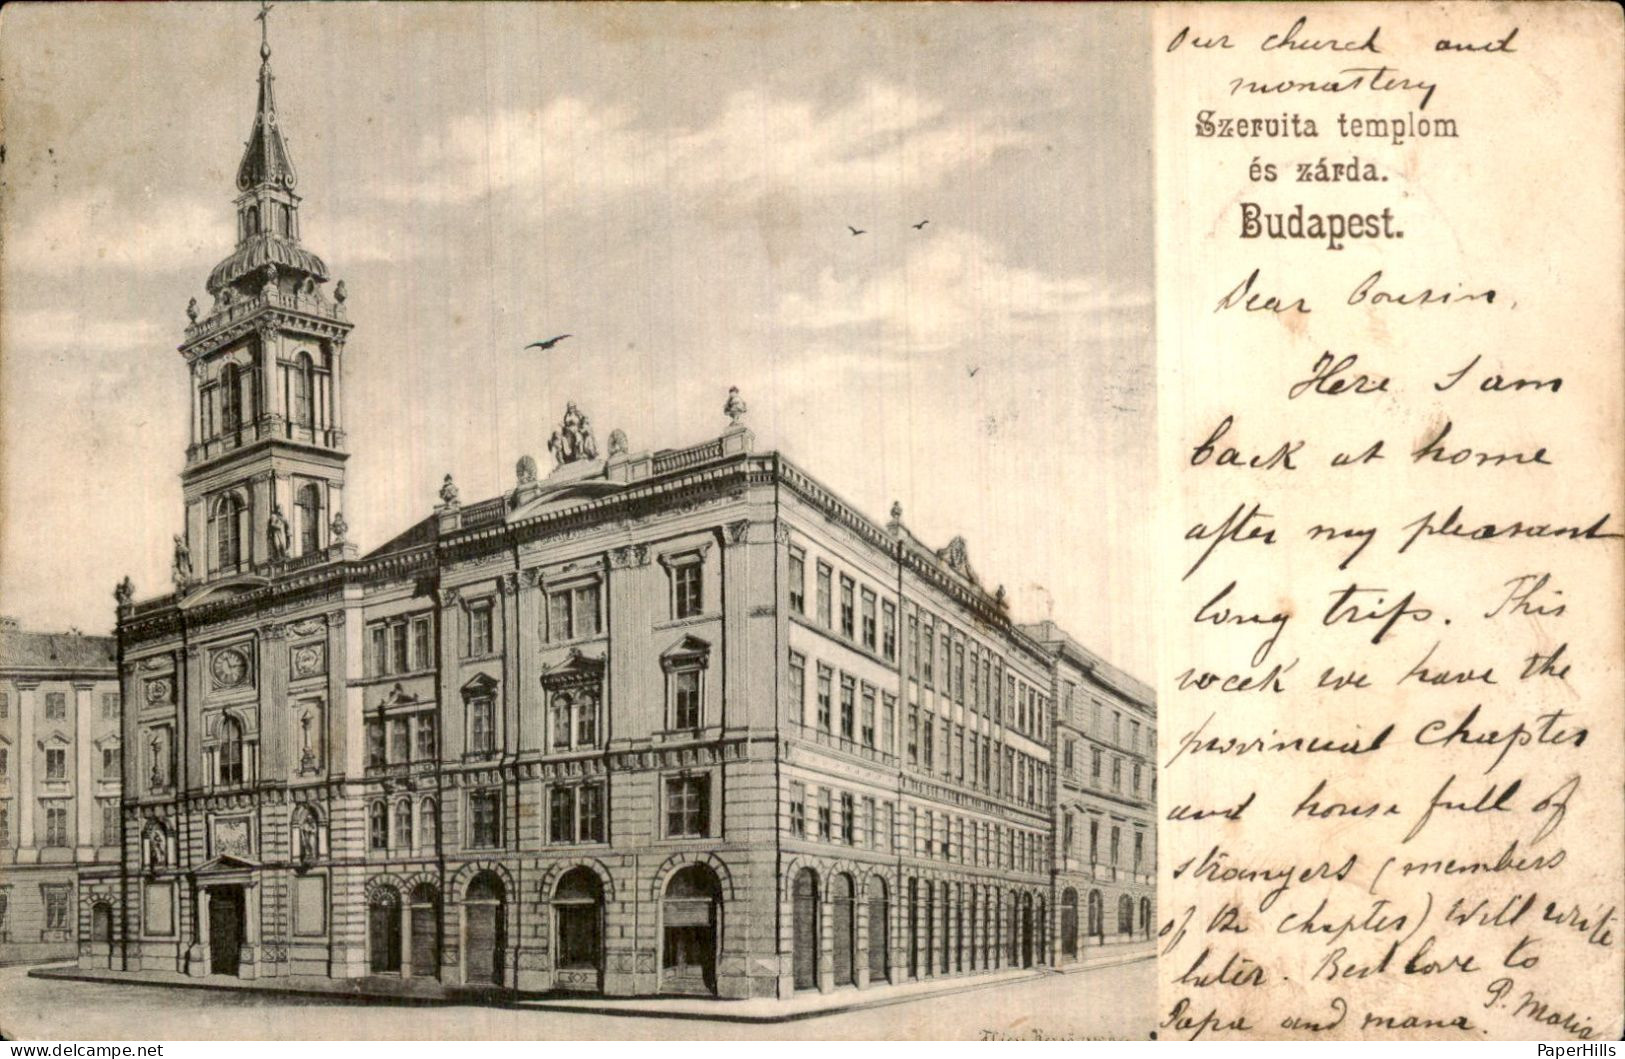 Our church and
monastery
Szervita templom
és zárda.
Budapest.
Dear Cousin,
Here I am
back at home
after my pleasant
long trip. This
week we have the
provincial Chapter
and house full of
strangers (members
of the chapter) Will write
later. Best love to
Papa and mama. P. Maria
PaperHills